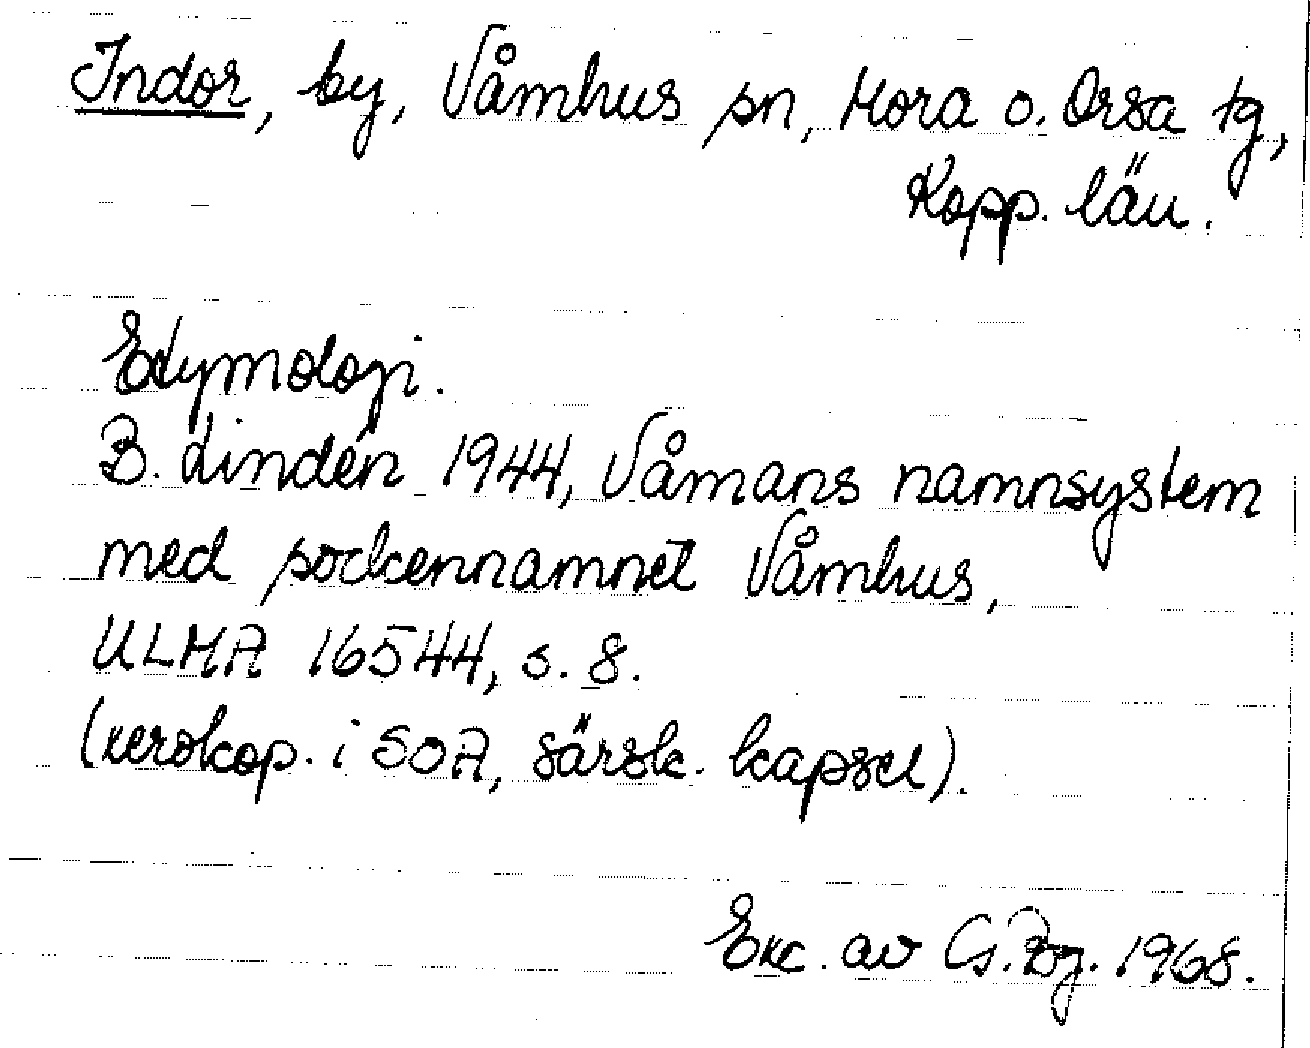 Indor, by, Våmhus sn, Mora o. Orsa tg,
Kopp. län.
Etymologi.
B. Lindén 1944, Våmans namnsystem
med sockennamnet Våmhus,
ULMA 16544, s. 8.
(xerokop. i SOA, särsk. kapsel).
Exc. av Gs. Bg. 1968.